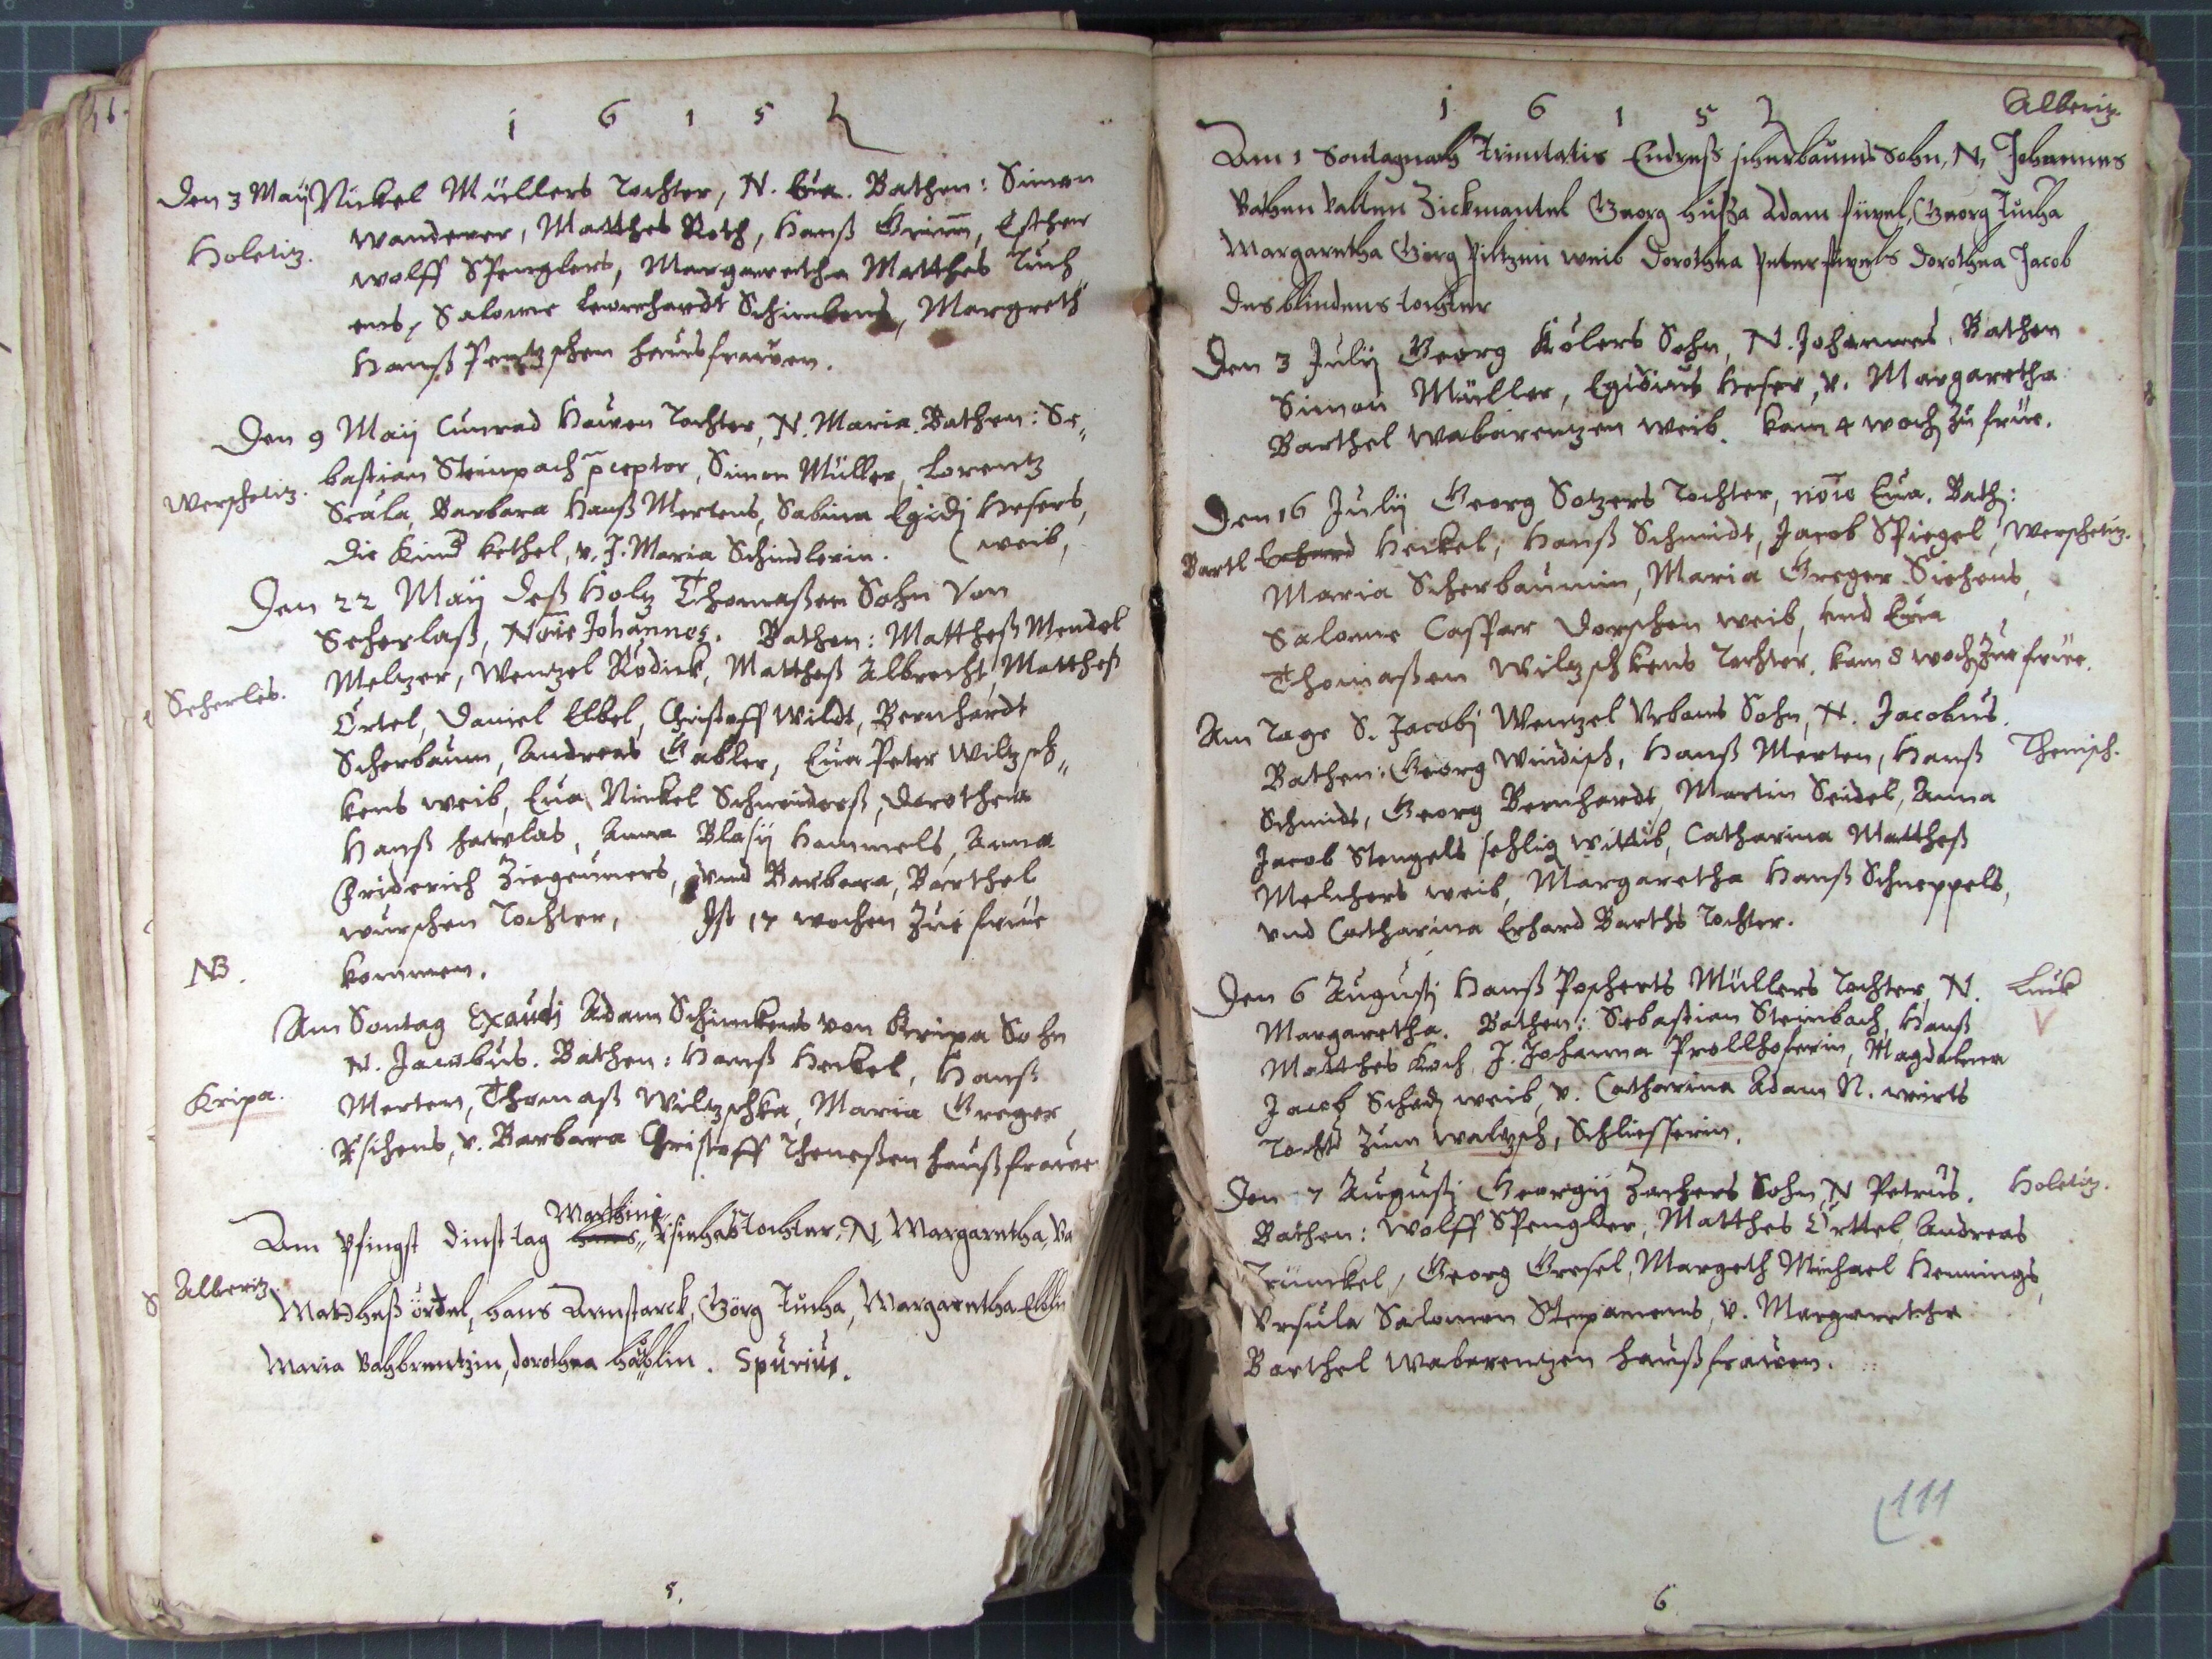 1 6 1 5
Den 3 Maÿ Nickel Müllers Tochter, N. Eua. Bathen: Simon
Holetitz.
Wanderer, Matthes Roth, Hanß Grimm, Esther
Wolff Spenglers, Margaretha Matthes Tuch
ens, Salome Leonhardt Schimkens, Margreth
Hanß Pentzschen hausfrawen.
Den 9 Maij Cunrad Hawen Tochter, N. Maria. Bathen: Se„
Werschetitz.
bastian Steinpach p̄ceptor, Simon Müller, Lorentz
Scala, Barbara Hanß Mertens, Sabina Egidj Hefers,
die Kind Kethel, v. J. Maria Schindlerin. (weib,
Den 22 Maij deß Holtz Thomaßen Sohn von
Scherlaß, Nōie Johannes. Bathen: Mattheß Mendel
Scherles.
Meltzer, Wentzel Rödick, Mattheß Albrecht, Mattheß
Örtel, Daniel Elbel, Christoff Wildt, Bernhardt
Scherbaum, Andreas Gabler, Eua Peter Wiltzsch„
kens weib, Eua Nickel Schneiderß, Dorothea
Hanß, Anna Blasij Hammels, Anna
Friderich Ziegeuners, vnd Barbara, Barthel
wurschen Tochter, Ist 17 wochen Zue früe
NB.
kommen.
Am Sontag Exaudj Adam Schimkens von Kripa Sohn
N. Jacobus. Bathen: Hanß Heckel, Hanß
Kripa.
Merten, Thomaß Wiltzschka, Maria Greger
v. Barbara Christoff Theneßen haußfrawe
Martini
Am Pfingst dinstag hans„ tochter, N, Margaretha, Ba
Alberitz.
Mattheß örtel, hans Armstarck, Görg Tucha, Margaretha Elblin
Maria Vahbrentzin, dorothea häblin. Spurius.
5.
1 6 1 5
Alberitz.
Am 1 Sontagnach Trinitatis Endreß scherbaums Sohn, N, Johannes
Bathen Valten Zickmantel Georg hußa Adam, Georg Tucha
Margaretha Görg weib Dorothea Peter Dorothea Jacob
des blindens tochter
Den 3 Julij Georg Kölers Sohn, N. Johannes, Bathen
Simon Müller, Egidius Hefer, v. Margaretha
Barthel Wabarentzen weib. kam 4 woch zu früe.
Den 16 Julij Georg Sotzers Tochter, nōie Eua. Bath:
Bartl Erhard Heckel, Hanß Schmidt, Jacob Spiegel,
Werschetitz.
Maria Scherbaumin, Maria Greger Siechens,
Salome Casper Dorschen weib, vnd Eua
Thomaßen Wiltzschkens Tochter. kam 8 woch Zue früe.
Am Tage S. Jacobj Wentzel Vrbans Sohn, N. Jacobus.
Bathen: Georg Windisch, Hanß Merten, Hanß
Thenisch.
Schmids, Georg Bernhardt, Martin Seidel, Anna
Jacob Stengels sehlig wittib, Catharina Mattheß
Melchers weib, Margaretha Hanß Schneppels,
vnd Catharina Erhard Barths Tochter.
Den 6 Augusti Hanß Poscherts Müllers Tochter, N.
Luck
Margaretha. Bathen: Sebastian Steinbach, Hanß
Matthes Koch, J. Johanna Prollhoferin, Magdalena
Jacob Schadj weib, v. Catharina Adam N. wirts
Tocht Zum waltzsch, Schliesserin.
Den 7 Augusti Georgij Zachers Sohn, N Petrus.
Holetitz.
Bathen: Wolff Spengler, Matthes Örttel, Andreas
Trünckel, Georg Gresel, Margeth Michael Hennings,
Vrsula Salomon Stepanens, v. Margaretha
Barthel Wabarentzen haußfrawen.
111
6